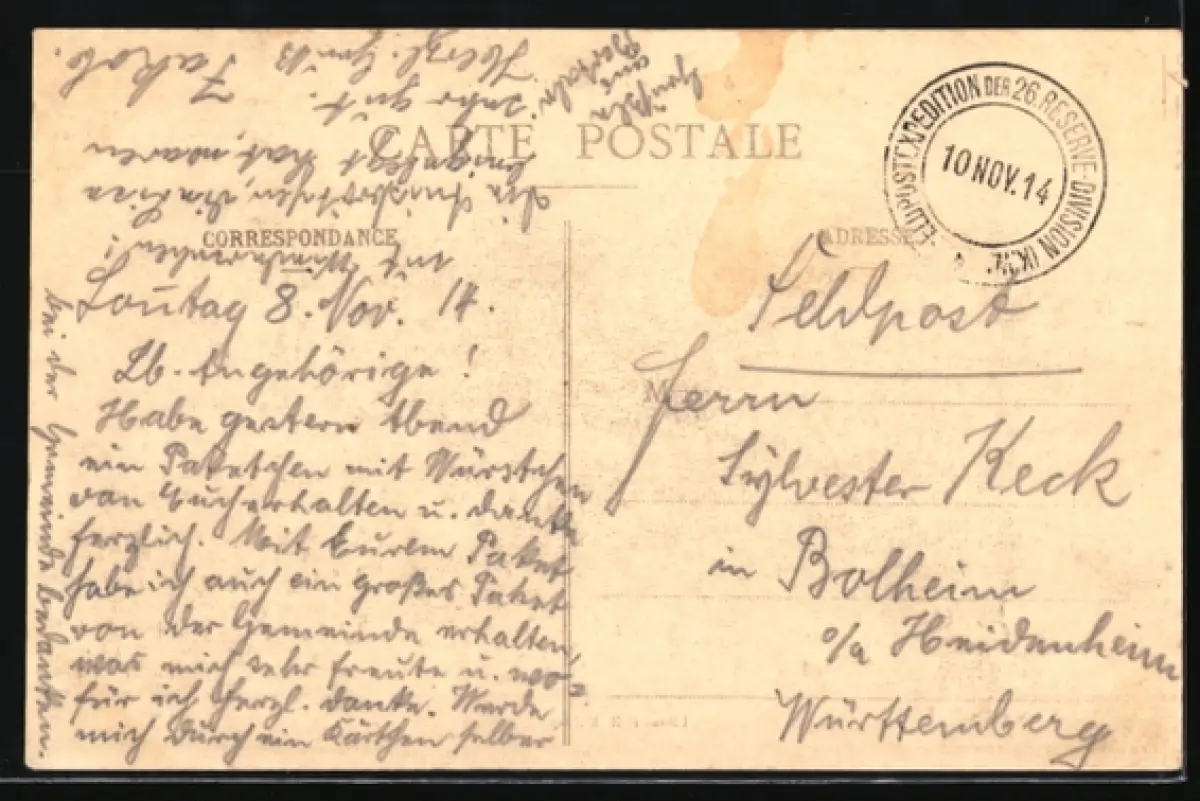 CARTE POSTALE
CORRESPONDANCE
ADRESSE
FELDPOSTEXPEDITION DER 26. RESERVE-DIVISION (K.W.
10 NOV. 14
Sontag 8. Nov. 14.
Lb. Angehörige!
Habe gestern Abend
ein Paketchen mit Würstchen
von Euch erhalten u. danke
herzlich. Mit Eurem Paket
habe ich auch ein großes Paket
von der Gemeinde erhalten,
was mich sehr freute u. wo-
für ich herzl. danke. Werde
mich durch ein Kärtchen selber
bei der Gemeinde bedanken.
Auf Wiedersehen!
Die
hat, waren
sehr gut.
Herzl. Gruß
Jakob.
Feldpost
Herrn
Sylvester Keck
in Bolheim
o/a Heidenheim
Württemberg